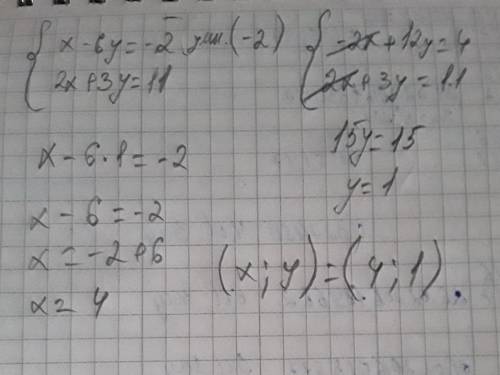 x - 6y = -2 умн. (-2)
2x + 3y = 11
-2x + 12y = 4
2x + 3y = 11
15y = 15
y = 1
x - 6 · 1 = -2
x - 6 = -2
x = -2 + 6
x = 4
(x ; y) = (4 ; 1).